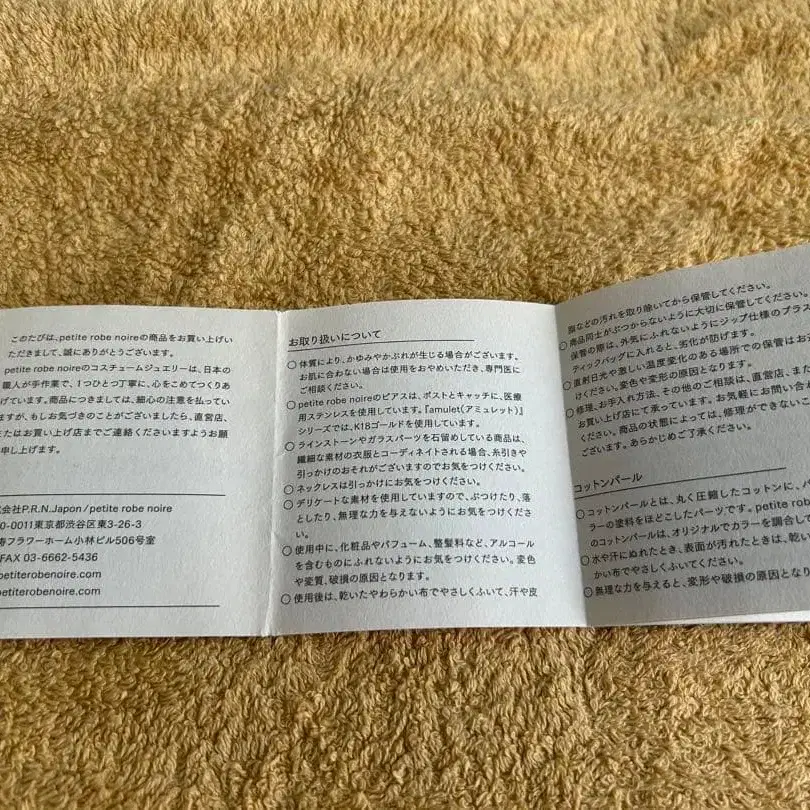 このたびは、petite robe noireの商品をお買い上げい
ただきまして、誠にありがとうございます。
petite robe noireのコスチュームジュエリーは、日本の
職人が手作業で、1つひとつ丁寧に、心をこめてつくりあ
げています。商品につきましては、細心の注意を払ってい
ますが、もしお気づきのことがございましたら、直営店、
またはお買い上げ店までご連絡くださいますようお願
申し上げます。
会社P.R.N.Japon/petite robe noire
0-0011東京都渋谷区東3-26-3
寿フラワーホーム小林ビル506号室
FAX 03-6662-5436
petiterobenoire.com
petiterobenoire.com
お取り扱いについて
○ 体質により、かゆみやかぶれが生じる場合がございます。
お肌に合わない場合は使用をおやめいただき、専門医に
ご相談ください。
○ petite robe noireのピアスは、ポストとキャッチに、医療
用ステンレスを使用しています。『amulet(アミュレット)』
シリーズでは、K18ゴールドを使用しています。
○ ラインストーンやガラスパーツを石留めしている商品は、
繊細な素材の衣服とコーディネイトされる場合、糸引きや
引っかけのおそれがございますのでお気をつけください。
○ ネックレスは引っかけにお気をつけください。
○ デリケートな素材を使用していますので、ぶつけたり、落
としたり、無理な力を与えないようにお気をつけくださ
い。
○ 使用中に、化粧品やパフューム、整髪料など、アルコール
を含むものにふれないようにお気をつけください。変色
や変質、破損の原因となります。
○ 使用後は、乾いたやわらかい布でやさしくふいて、汗や皮
脂などの汚れを取り除いてから保管してください。
○ 商品同士がぶつからないように大切に保管してください。
保管の際は、外気にふれないようにジップ仕様のプラス
ティックバッグに入れると、劣化が防げます。
○ 直射日光や激しい温度変化のある場所での保管はお
けください。変色や変形の原因となります。
○ 修理、お手入れ方法、その他のご相談は、直営店、また
お買い上げ店にて承っています。お気軽にお問い合
ください。商品の状態によっては、修理ができないこ
ございます。あらかじめご了承ください。
コットンパール
○ コットンパールとは、丸く圧縮したコットンに、パ
ラーの塗料をほどこしたパーツです。petite rob
のコットンパールは、オリジナルでカラーを調合し
○ 水や汗にぬれたとき、表面が汚れたときは、乾い
かい布でやさしくふいてください。
○ 無理な力を与えると、変形や破損の原因となり